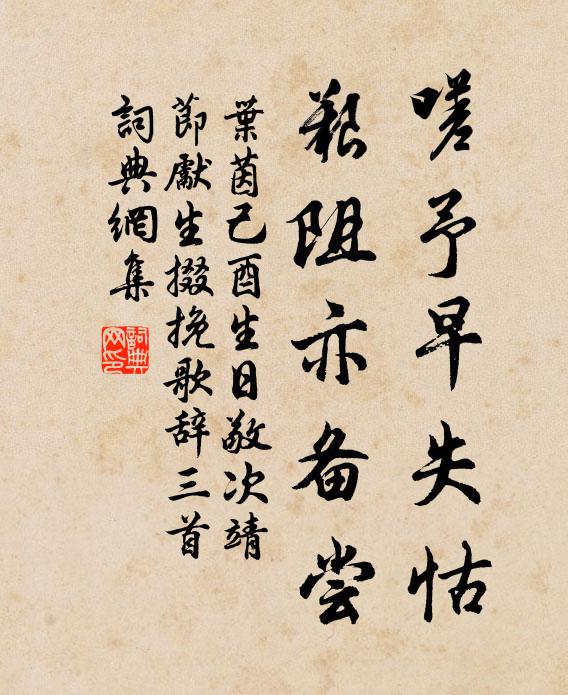 嗟予早失怙
艱阻亦备尝
葉茵己酉生日敬次靖
節獻生掇挽歌辞三首
詞典網集
詞典網印